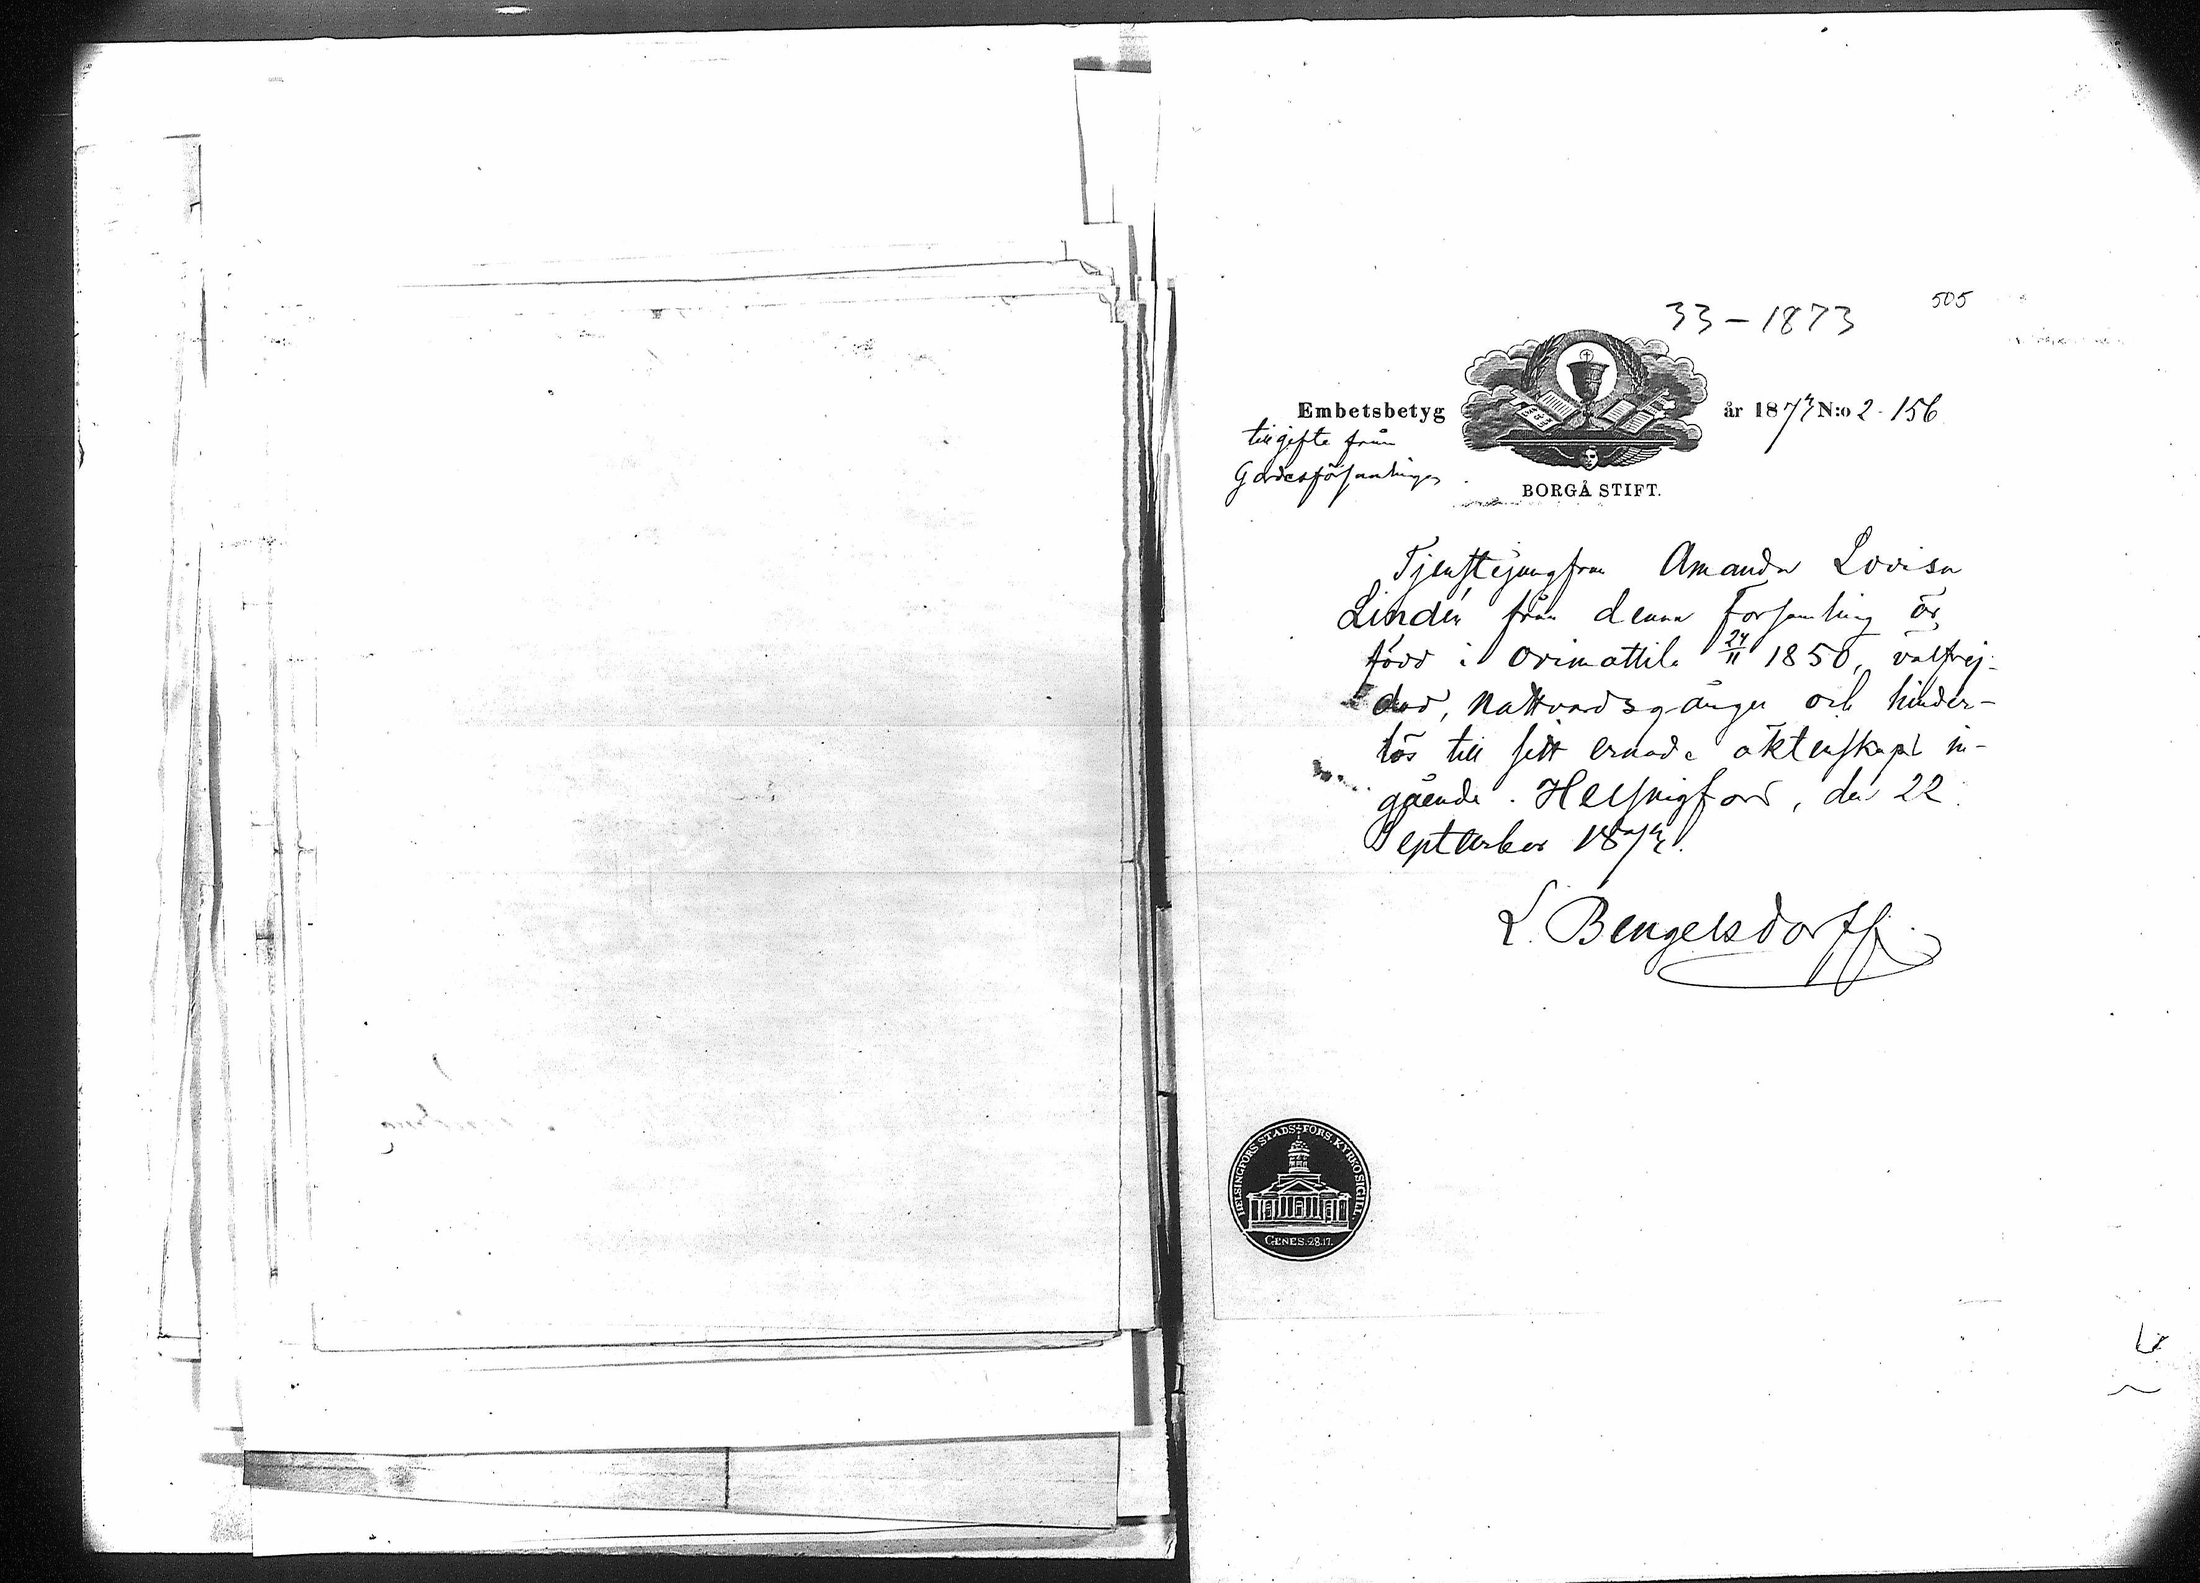 505
33-1873
Embetsbetyg år 1873 N:o 2-156
till gifte från
Gardesförsamlingen
BORGÅ STIFT.
Tjenstejungfrun Amanda Lovisa
Lindén från denna Församling är
född i Orimattila 24/11 1850, välfrej-
dad, nattvardsgånger och hinder-
lös till sitt ernade äktenskaps in-
gående. Helsingfors, den 22
September 1873.
L. Bengelsdorff
HELSINGFORS STADS FÖRS. KYRKO SIGILL.
GENES. 28.17.